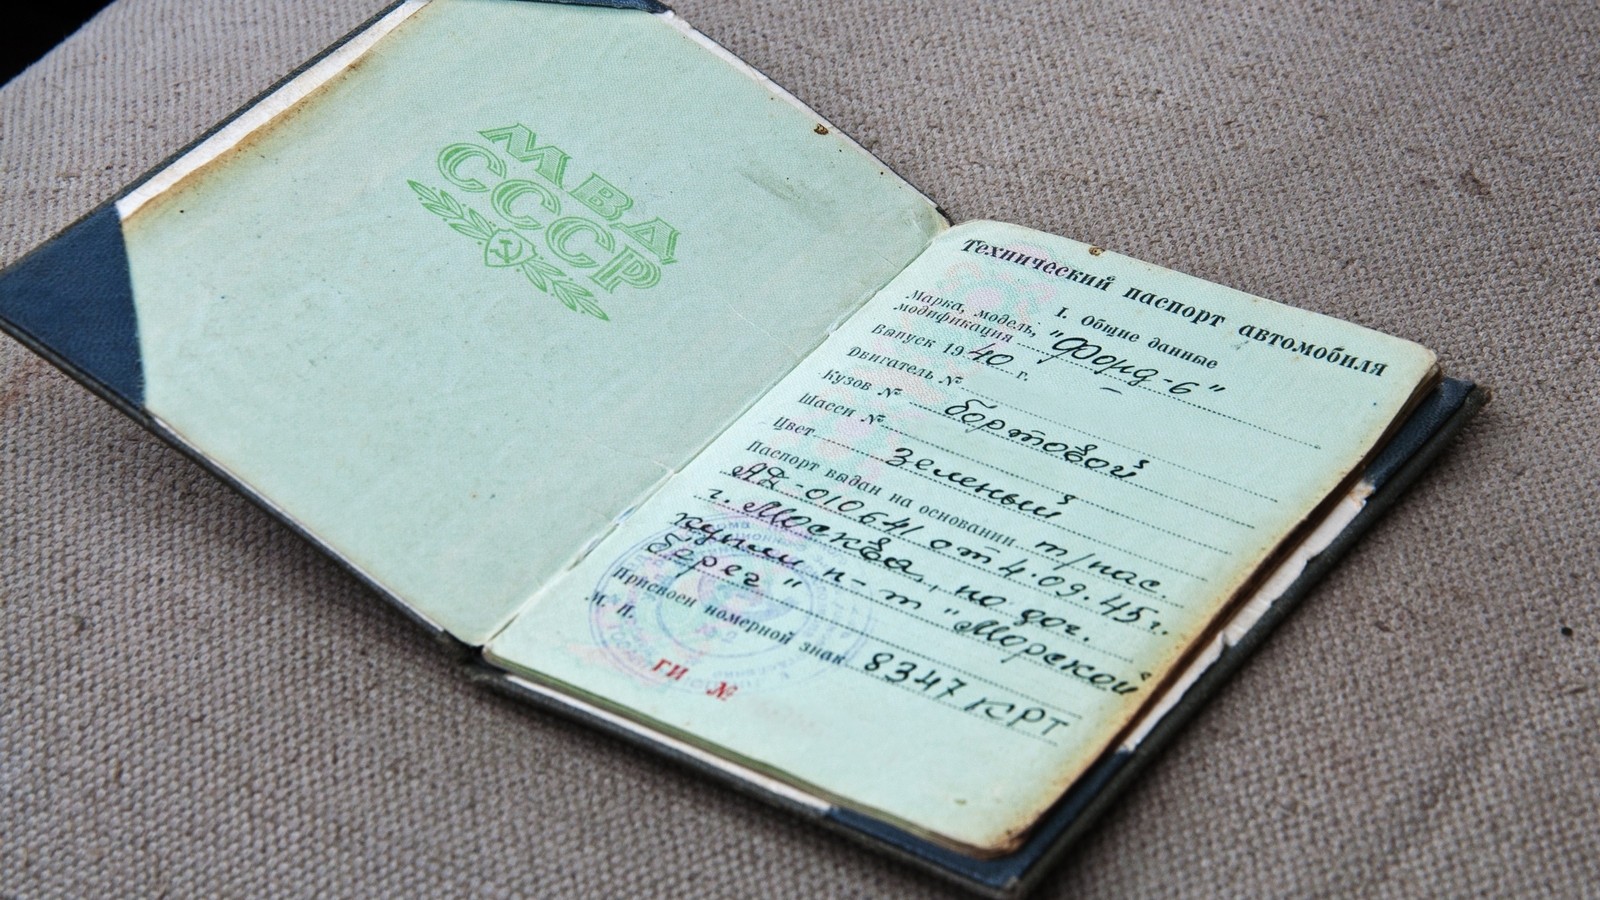 МВД
СССР
Технический паспорт автомобиля
I. Общие данные
Марка, модель,
модификация "Форд-6"
Выпуск 1940 г. —
Двигатель №
Кузов № бортовой
Шасси №
Цвет Зеленый
Паспорт выдан на основании т/пас.
АД-010641 от 4.09.45г.
г. Москва, по дог.
купли п-т "Морской
берег"
Присвоен номерной знак 8347 КРТ
М. П.
ГИ №